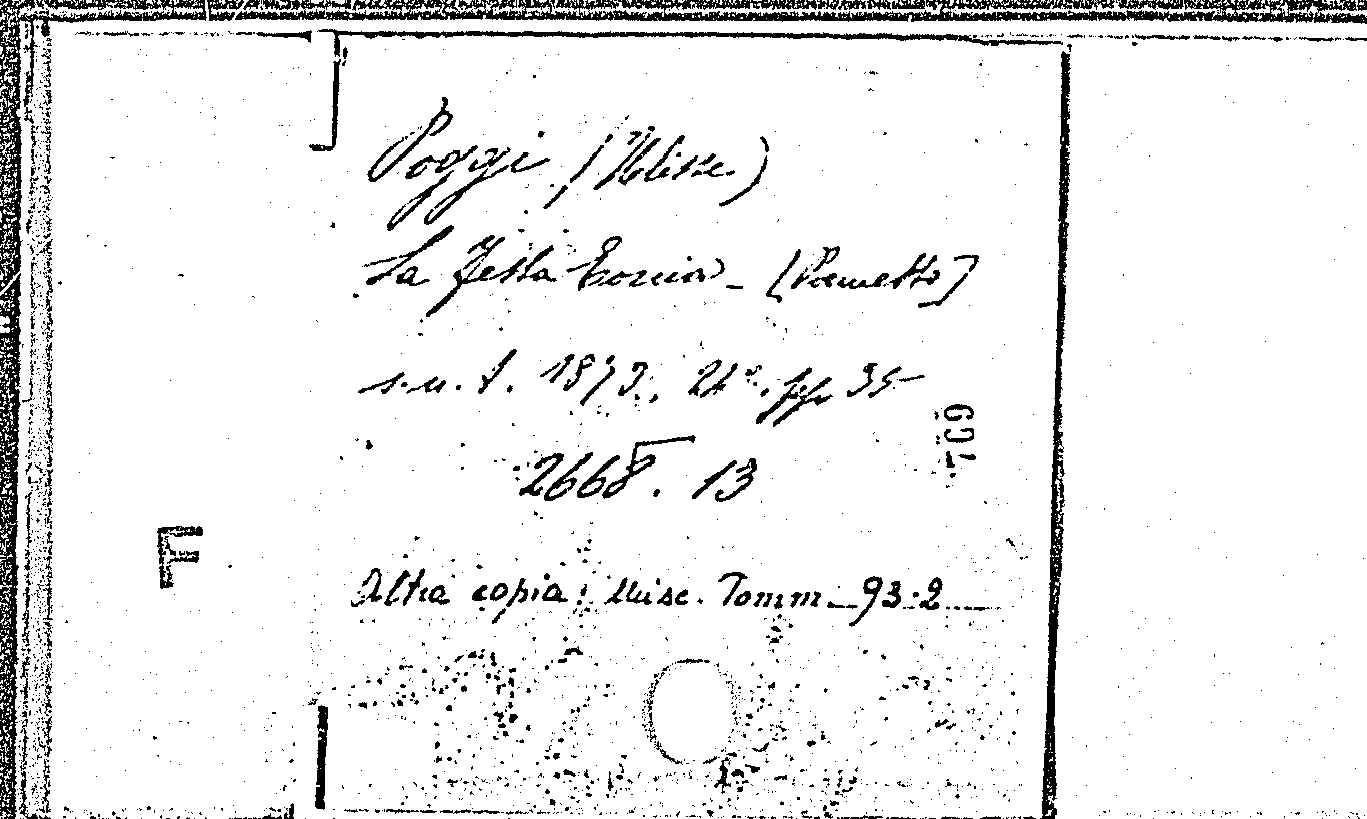 Poggi (Ulisse)
La Testa Eoница - [Poemetto]
s. n. t. 1873, 24°. pp. 35
2668. 13
F
Altra copia: Misc. Tomm. 93.2